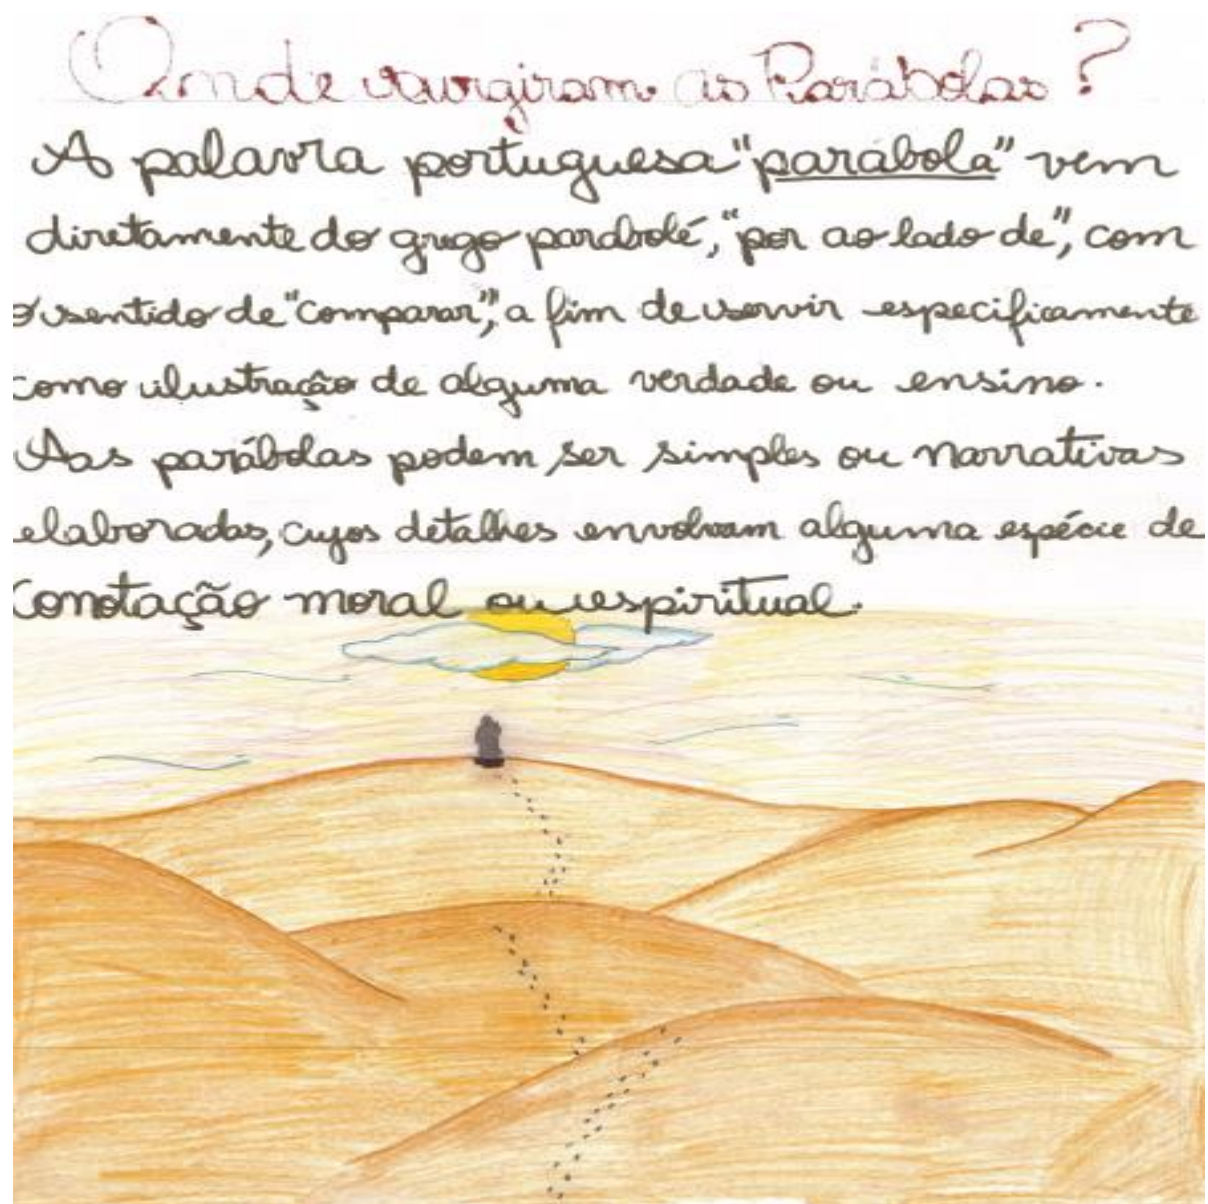 Onde surgiram as Parábolas?
A palavra portuguesa "parábola" vem
diretamente do grego parabolé, "por ao lado de", com
o sentido de "comparar", a fim de servir especificamente
como ilustração de alguma verdade ou ensino.
Aas parábolas podem ser simples ou narrativas
elaboradas, cujos detalhes envolvam alguma espécie de
conotação moral ou espiritual.